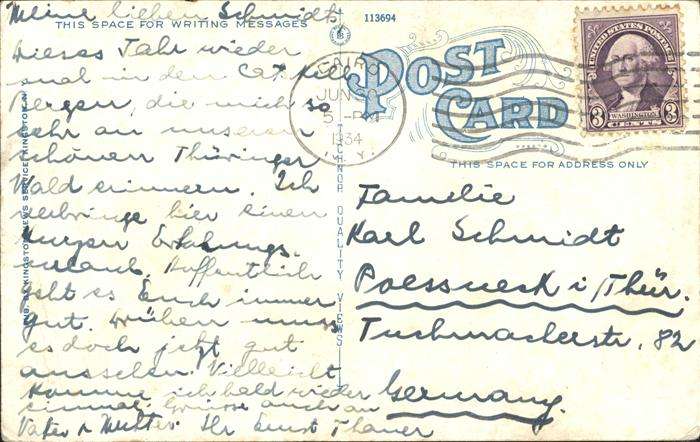 Meine lieben Schmidts
THIS SPACE FOR WRITING MESSAGES
Dieses Jahr wieder
mal in den Catskill
Bergen, die mich so
sehr an unseren
schönen Thüringer
Wald erinnern. Ich
verbringe hier einen
kurzen Erholungs-
urlaub. Hoffentlich
geht es Euch immer
gut. Drüben muss
es doch jetzt gut
aussehen. Vielleicht
komme ich bald wieder
einmal. Grüsse auch an
Vater u Mutter. Ihr Ernst Thauer
KINGSTON NEWS SERVICE, KINGSTON, N.
QUALITY VIEWS
113694
POST
CARD
CAIRO
JUN
5 PM
1934
N.Y.
UNITED STATES POSTAGE
3 WASHINGTON 3
CENTS
THIS SPACE FOR ADDRESS ONLY
Familie
Karl Schmidt
Poessneck i/Thür.
Tuchmacherstr. 82
Germany.